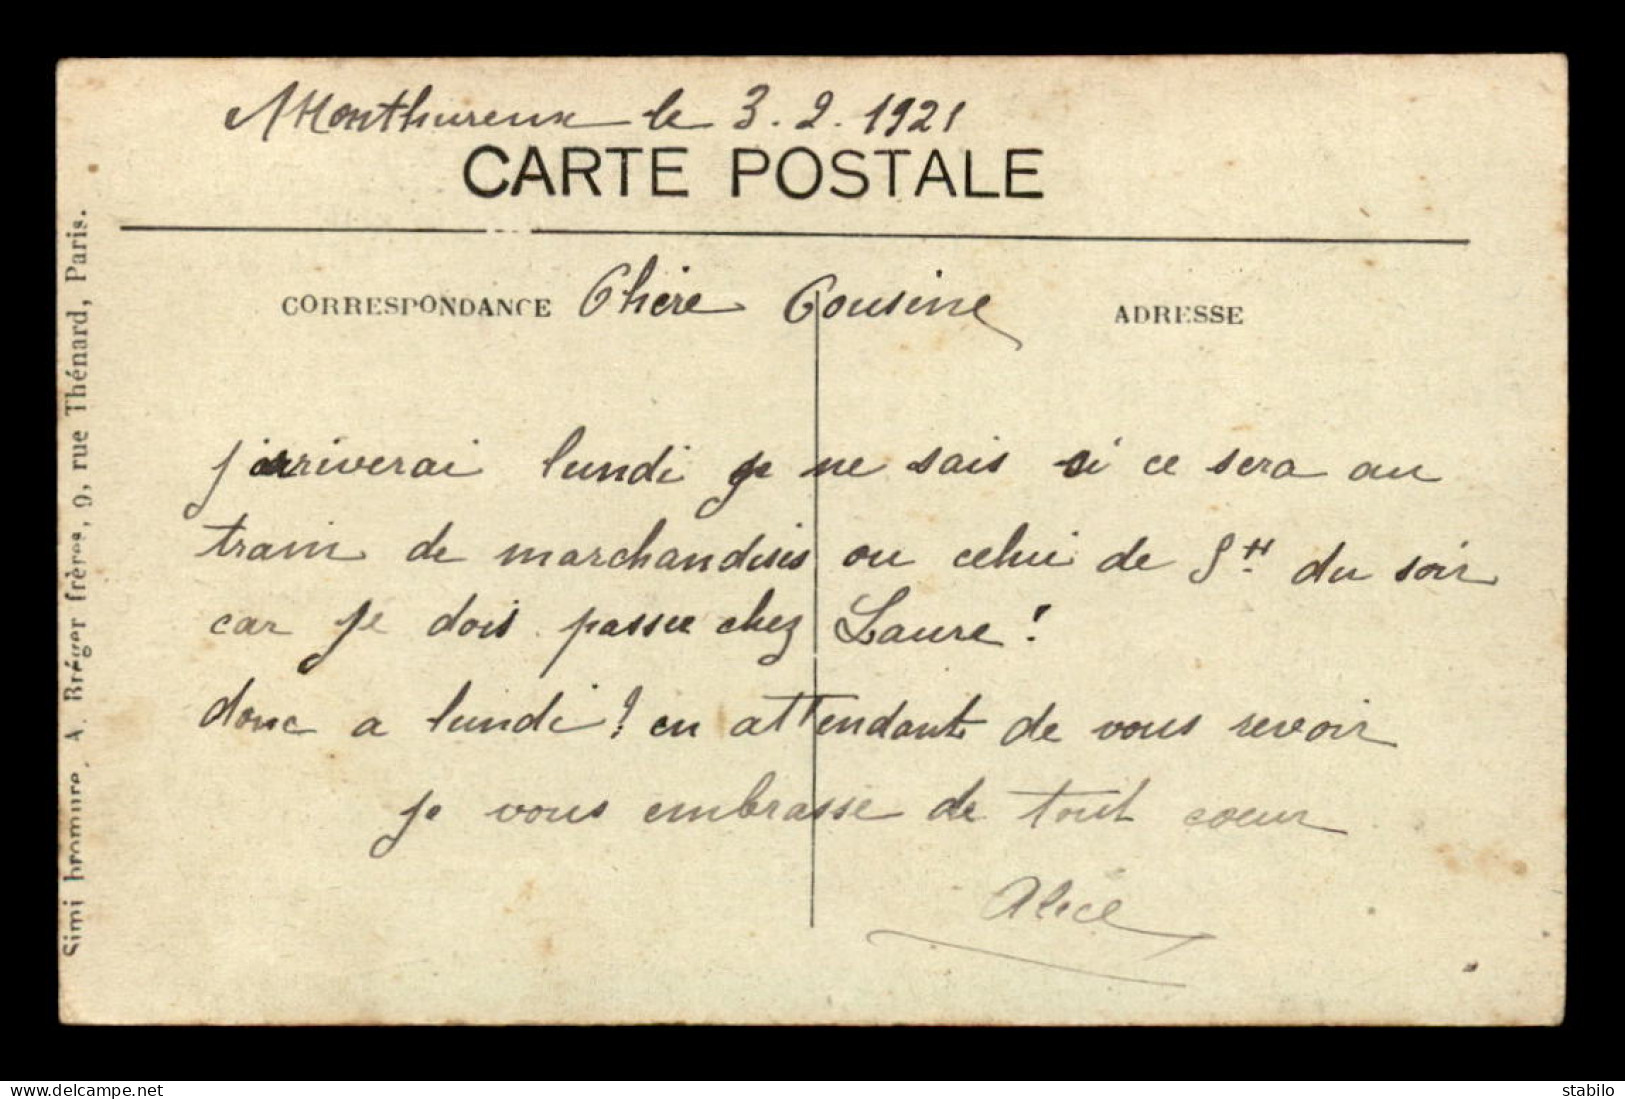 Monthureux le 3. 2. 1921
CARTE POSTALE
CORRESPONDANCE Chère Cousine ADRESSE
j'arriverai lundi je ne sais si ce sera au
train de marchandises ou celui de 5H du soir
car je dois passer chez Laure !
donc a lundi ! en attendant de vous revoir
je vous embrasse de tout coeur
Alice
Simi bromure, A. Bréger frères, 9, rue Thénard, Paris.
delcampe.net
stabilo